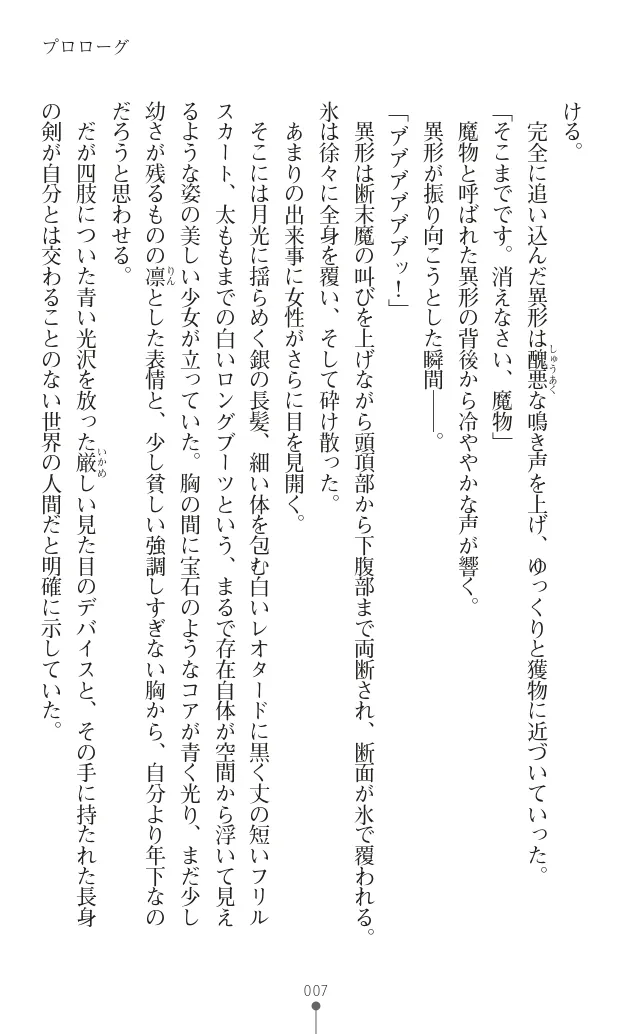 プロローグ
ける。
完全に追い込んだ異形は醜悪な鳴き声を上げ、ゆっくりと獲物に近づいていった。
「そこまでです。消えなさい、魔物」
魔物と呼ばれた異形の背後から冷ややかな声が響く。
異形が振り向こうとした瞬間――。
「ア゛ア゛ア゛ア゛ア゛ア゛ッ！」
異形は断末魔の叫びを上げながら頭頂部から下腹部まで両断され、断面が氷で覆われる。
氷は徐々に全身を覆い、そして砕け散った。
あまりの出来事に女性がさらに目を見開く。
そこには月光に揺らめく銀の長髪、細い体を包む白いレオタードに黒く丈の短いフリル
スカート、太ももまでの白いロングブーツという、まるで存在自体が空間から浮いて見え
るような姿の美しい少女が立っていた。胸の間に宝石のようなコアが青く光り、まだ少し
幼さが残るものの凛とした表情と、少し貧しい強調しすぎない胸から、自分より年下なの
だろうと思わせる。
だが四肢についた青い光沢を放った厳しい見た目のデバイスと、その手に持たれた長身
の剣が自分とは交わることのない世界の人間だと明確に示していた。
しゅうあく
りん
いかめ
007